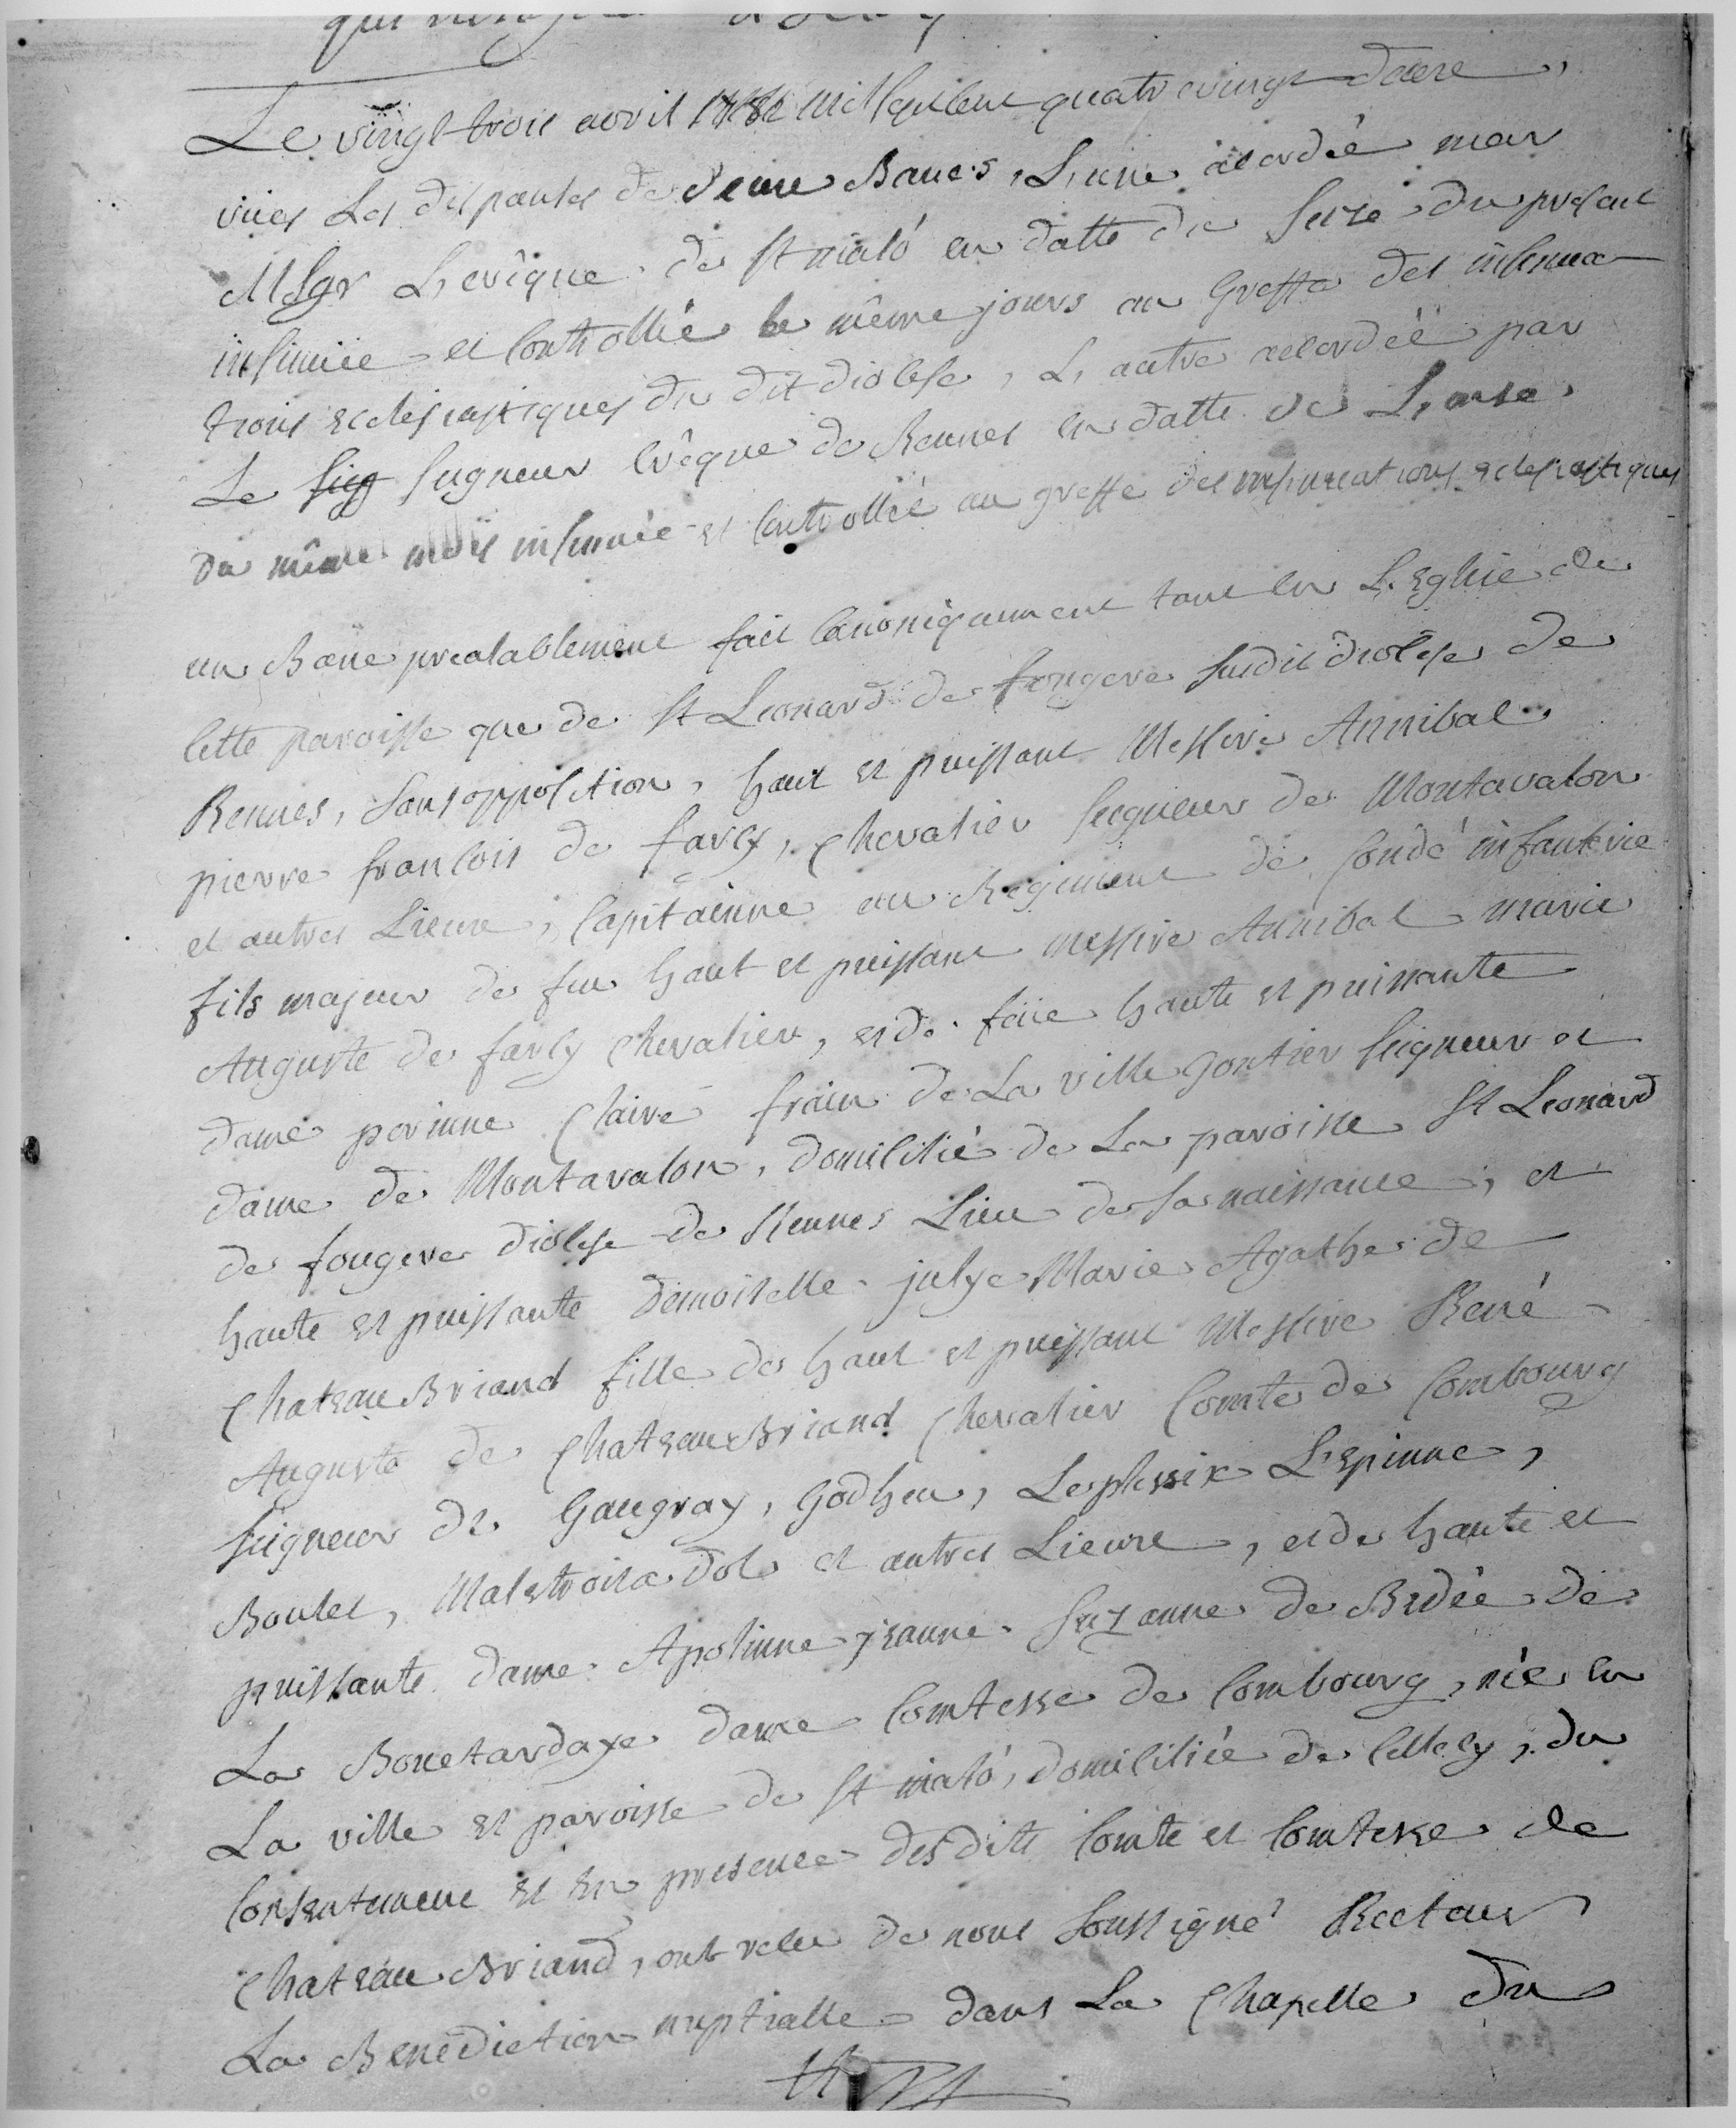 Le vingt trois avril 1782 mil sept cent quatre vingt deux,
vües Les dispanses de deux Banes, L,une acordée par
MSgr L,evêque de St maló en datte du seize du present
insinuée et Controllée le même jours au Greffe des insinua
tions Eclesiastiques du dit diolese, L, autre acordée par
Le Seigneur Evêque de Rennes en datte de L,onze
du même mois insinuée et Controllée au greffe des insinuations eclesiastiques
un Bane prealablement fait Canoniquement tant en L,Eglise de
Cette paroisse que de St Leonard de fougere susdit diocese de
Rennes, Sans opposition, haut et puissant Messire Annibal
pierre françois de farcy, Chevalier Seigneur de Montavalon
et autres Lieux, Capitainne au Regiment de Condé infanterie
fils majeur de feu haut et puissant messire Annibal marie
Auguste de farcy Chevalier, et de feüe haute et puissante
dame perinne Claire frain de La ville gontier Seigneur et
dame de Montavalon, domicilié de La paroisse St Leonard
de fougere diocese de Rennes Lieu de sa naissance, et
haute et puissante demoiselle julye Marie Agathe de
ChateauBriand fille de haut et puissant Messire René
Auguste de ChateauBriand Chevalier Comte de Combourg
Seigneur de Gaugray, Godheu, Leplessix L'Epinne,
Boulet, Malestroit a dol et autres Lieux, et de haute et
puissante dame Apolinne jeanne Suzanne de Bedée de
La Bouetardaye dame Comtesse de Combourg, née en
La ville et paroisse de St maló, domiciliée de Celle cy, du
Consentement et En presence des dits Comte et Comtesse de
Chateau Briand, ont reçu de nous Soussigné Recteur
La Benediction nuptialle dans La Chapelle du